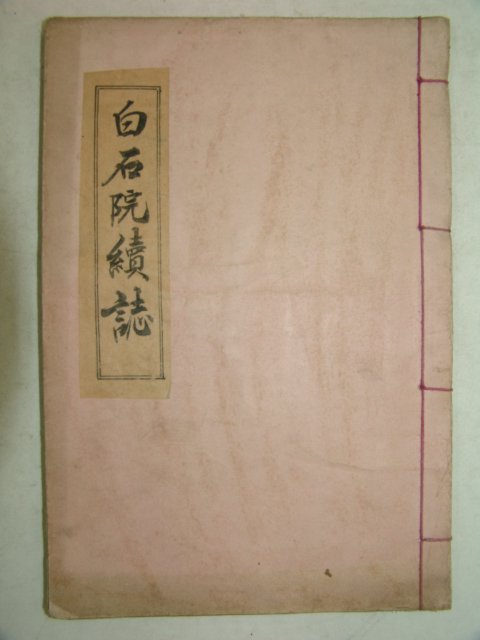 白石院續誌